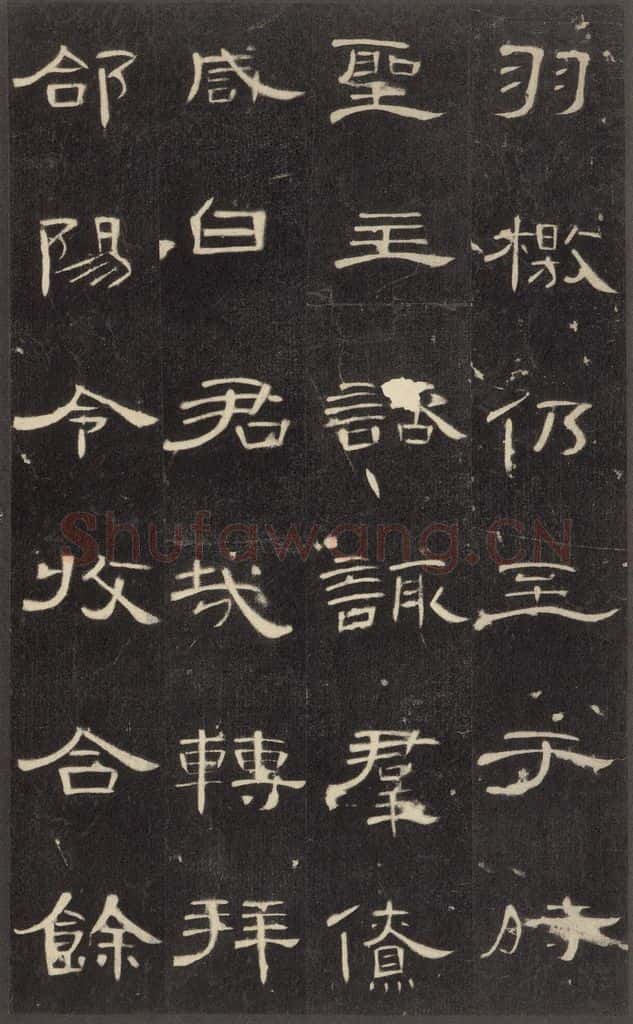 羽檄仍至于時
聖主諮諏羣僚
咸曰君哉轉拜
郃陽令收合餘
Shufawang.CN